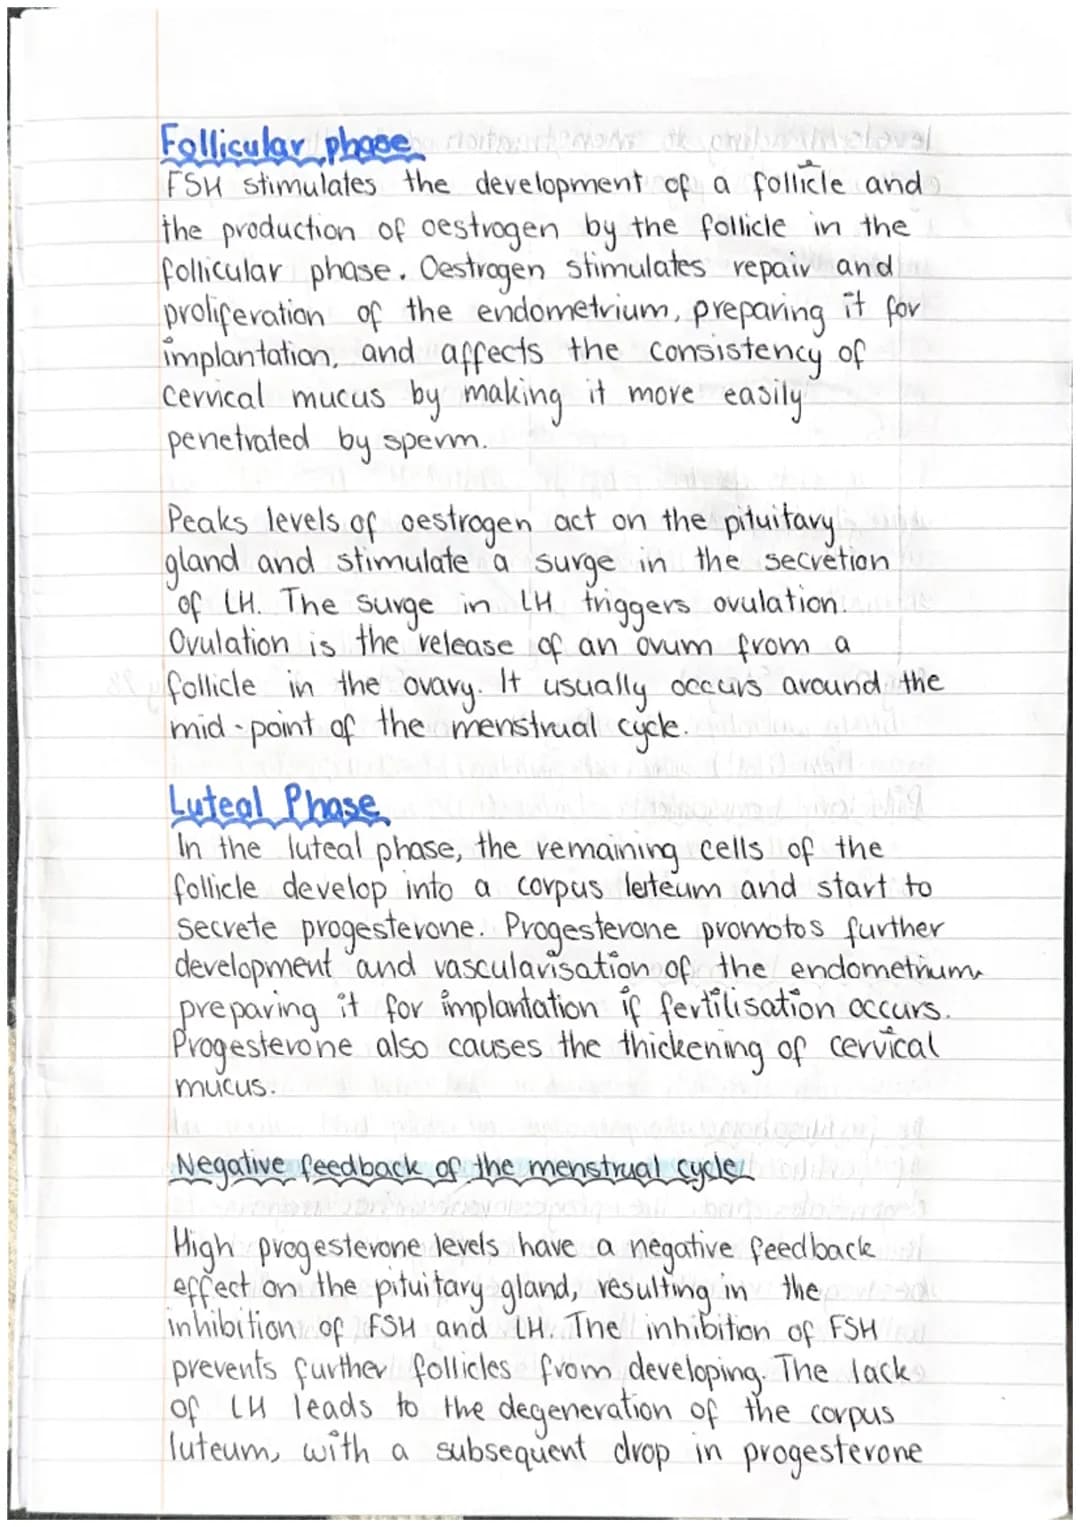 Follicular phase
FSH stimulates the development of a follicle and
the production of oestrogen by the follicle in the
follicular phase. Oestrogen stimulates repair and
proliferation of the endometrium, preparing it for
implantation, and affects the consistency of
cervical mucus by making it more easily
penetrated by sperm.
Peaks levels of oestrogen act on the pituitary
gland and stimulate a surge in the secretion
of LH. The surge in LH triggers ovulation.
Ovulation is the release of an ovum from a
follicle in the ovary. It usually occurs around the
mid-point of the menstrual cycle.
Luteal Phase
In the luteal phase, the remaining cells of the
follicle develop into a corpus leiteum and start to
secrete progesterone. Progesterone promotos further
development and vascularisation of the endometrium
preparing it for implantation if fertilisation occurs.
Progesterone also causes the thickening of cervical
mucus.
Negative feedback of the menstrual cycle
High progesterone levels have a negative feedback
effect on the pituitary gland, resulting in the
inhibition of FSH and LH. The inhibition of FSH
prevents further follicles from developing. The lack
of LH leads to the degeneration of the corpus
luteum, with a subsequent drop in progesterone